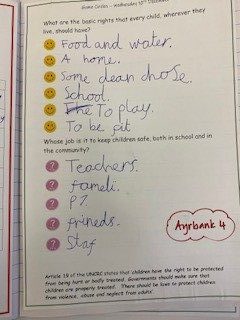 Game Circles - Wednesday 10th December
What are the basic rights that every child, wherever they
live, should have?
Food and water.
A home.
Some clean chose.
School.
The To play.
To be fit
Whose job is it to keep children safe, both in school and in
the community?
Teachers.
fameli.
P7.
frineds.
Staf
Ayrbank 4
Article 19 of the UNCRC states that 'children have the right to be protected
from being hurt or badly treated. Governments should make sure that
children are properly treated. There should be laws to protect children
from violence, abuse and neglect from adults'.